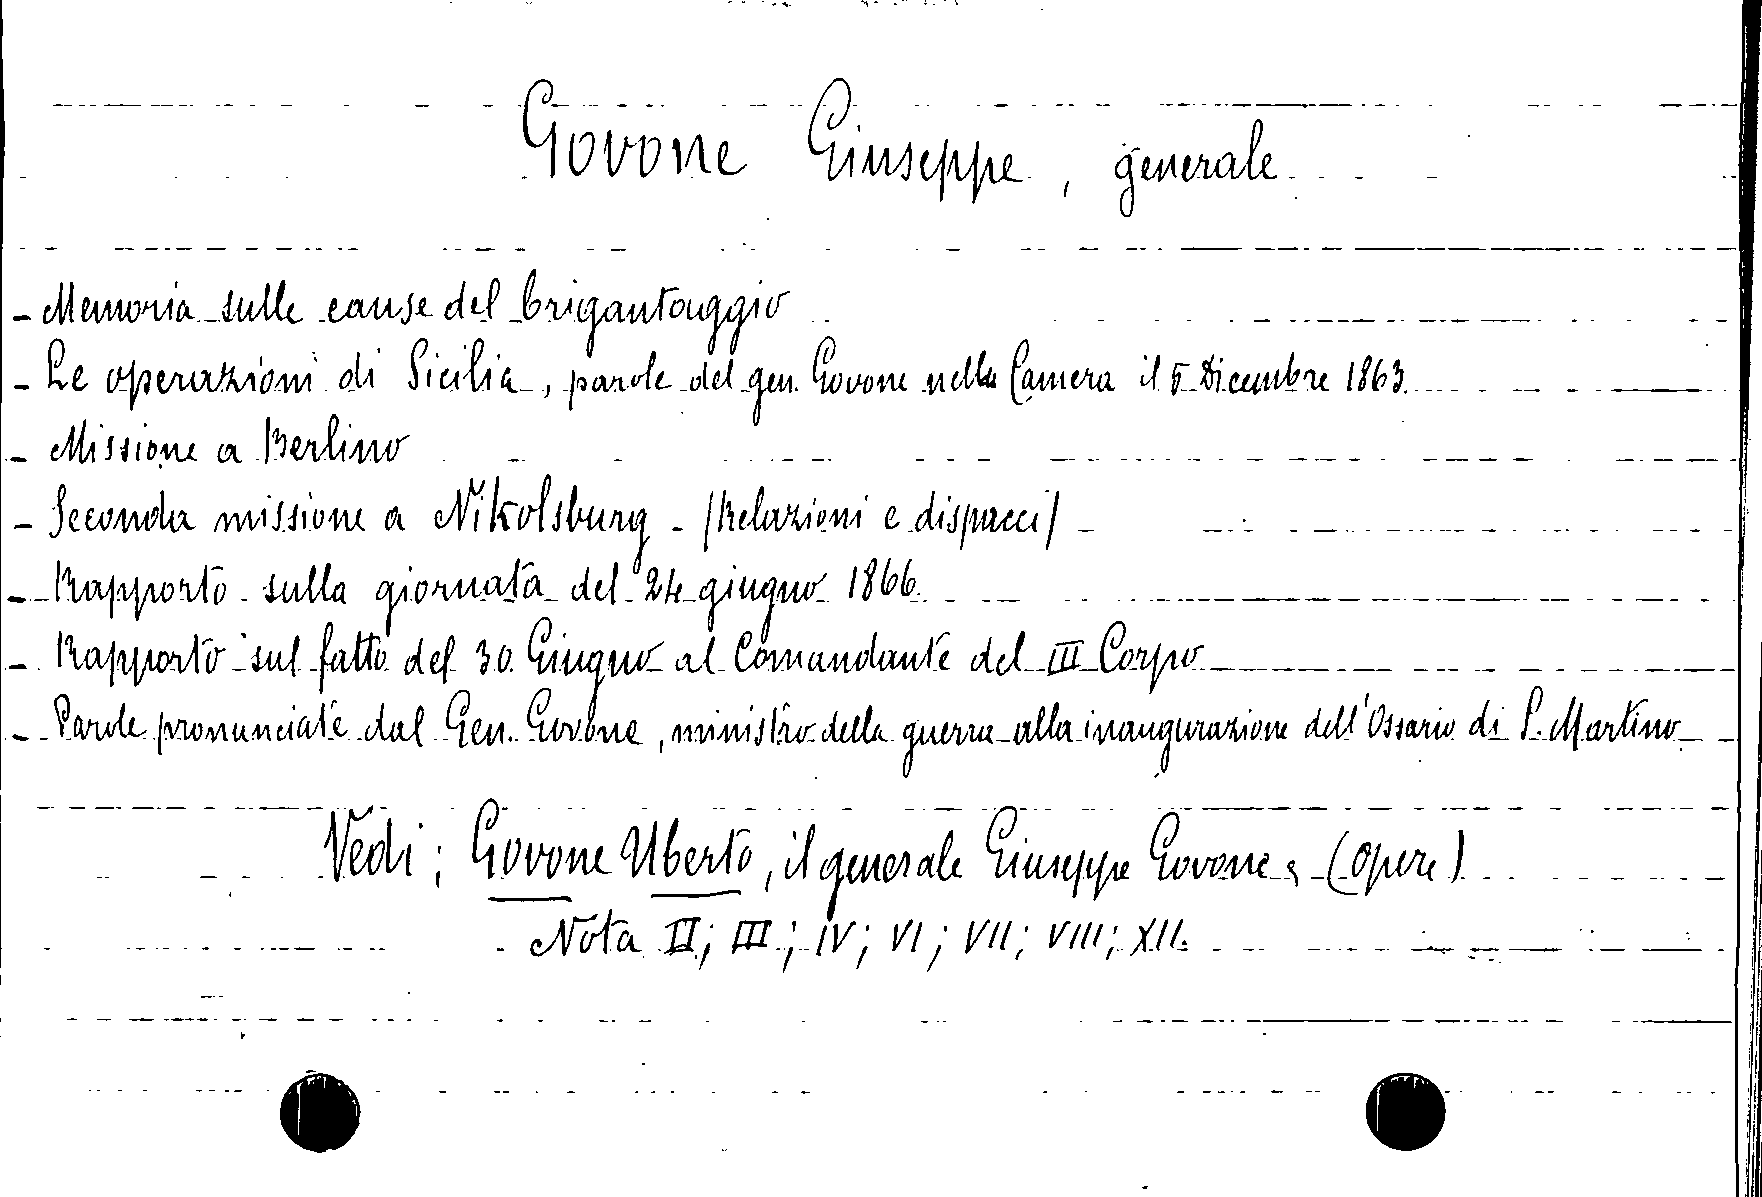 Govone Giuseppe, generale
- Memoria sulle cause del brigantaggio
- Le operazioni di Sicilia, parole del gen. Govone nella Camera il 5 Dicembre 1863.
- Missione a Berlino
- Seconda missione a Nikolsburg - (Relazioni e dispacci)
- Rapporto sulla giornata del 24 giugno 1866.
- Rapporto sul fatto del 30 Giugno al Comandante del III Corpo
- Parole pronunciate dal Gen. Govone, ministro della guerra alla inaugurazione dell'Ossario di S. Martino
Vedi: Govone Uberto, il generale Giuseppe Govone, (opere)
Nota II; III; IV; VI; VII; VIII; XII.